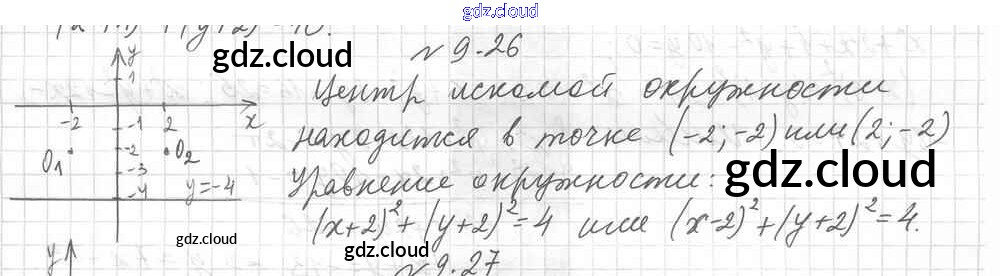 gdz.cloud
(x+1)² + (y+2)² = 10.
№9.26
gdz.cloud
Центр искомой окружности
находится в точке (-2; -2) или (2; -2)
Уравнение окружности:
gdz.cloud
(x+2)² + (y+2)² = 4 или (x-2)² + (y+2)² = 4.
y
1
-2 2 x
-1
O₁ -2 O₂
-3
-4 y=-4
gdz.cloud
gdz.cloud
y
№9.27